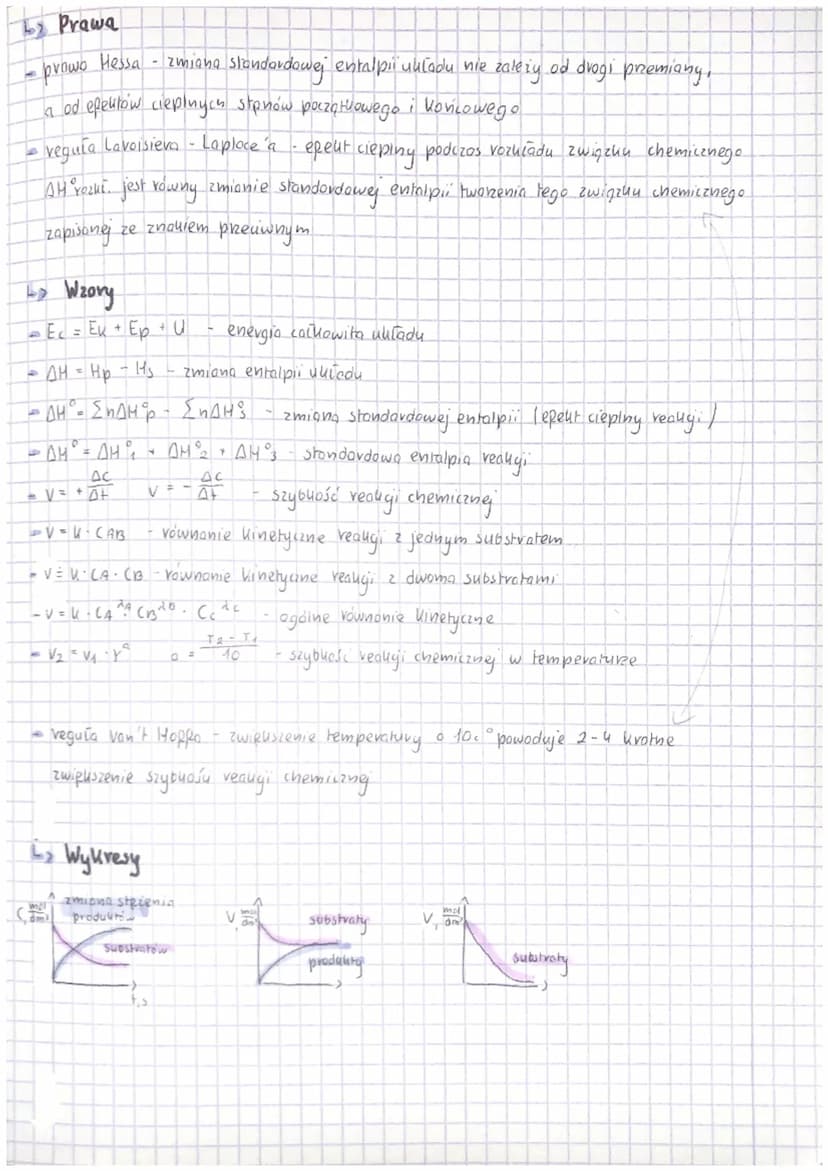 ↳ Prawa
- prawo Hessa - zmiana standardowej entalpii układu nie zależy od drogi przemiany,
a od efektów cieplnych stanów początkowego i końcowego
- reguła Lavoisiera - Laplace'a - efekt cieplny podczas rozkładu związku chemicznego
ΔH°rozkł. jest równy zmianie standardowej entalpii tworzenia tego związku chemicznego
zapisanej ze znakiem przeciwnym
↳ Wzory
- Ec = Ek + Ep + U - energia całkowita układu
- ΔH = Hp - Hs - zmiana entalpii układu
- ΔH° = ΣnΔH°p - ΣnΔH°s - zmiana standardowej entalpii (efekt cieplny reakcji)
- ΔH° = ΔH°1 + ΔH°2 + ΔH°3 - standardowa entalpia reakcji
- V = + ΔC/Δt V = - ΔC/Δt - szybkość reakcji chemicznej
- V = k · CAB - równanie kinetyczne reakcji z jednym substratem
- V = k · CA · CB - równanie kinetyczne reakcji z dwoma substratami
- V = k · CA^λA · CB^λB · Cc^λc - ogólne równanie kinetyczne
- V2 = V1 · γ^a a = T2 - T1/10 - szybkość reakcji chemicznej w temperaturze
- reguła Van't Hoffa - zwiększenie temperatury o 10c° powoduje 2-4 krotne
zwiększenie szybkości reakcji chemicznej
↳ Wykresy
C, mol/dm³ zmiana stężenia
produktów
substratów
t,s
V, mol/dm³ substraty
produkty
V, mol/dm³
substraty